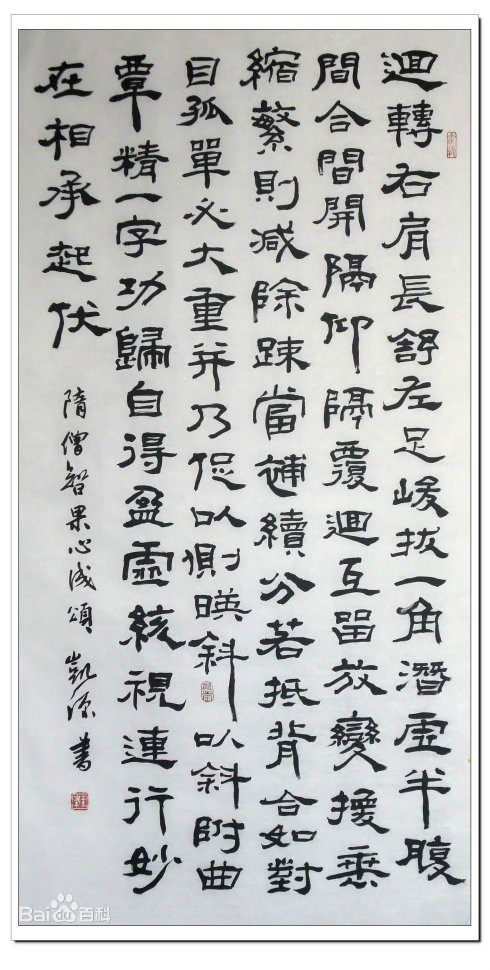 迴轉右肩長舒左足峻拔一角潛虛半腹
間合間開隔仰隔覆迴互留放變換垂
縮繁則减除踈當補續分若抵背合如對
目孤單必大重并乃促以側暎斜以斜附曲
覃精一字功歸自得盈虛統視連行妙
在相承起伏
隋僧智果心成頌 凱源書
Bai百科